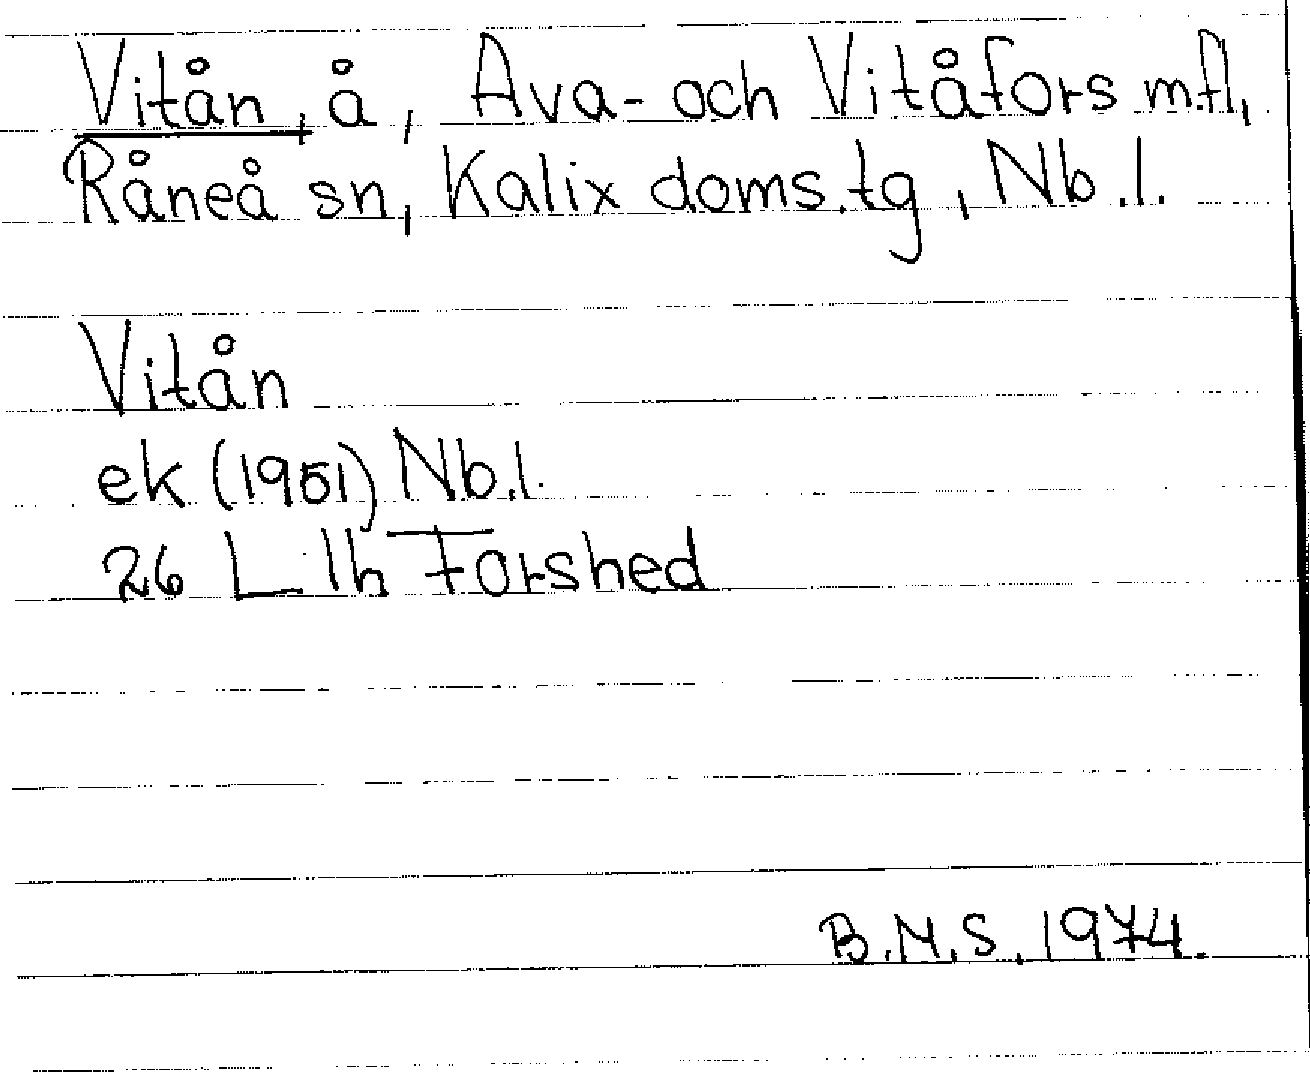 Vitån, å, Ava- och Vitåfors m.fl,
Råneå sn, Kalix doms.tg, Nb.l.
Vitån
ek (1951) Nb.l.
26 L lh Forshed
B.N.S, 1974.